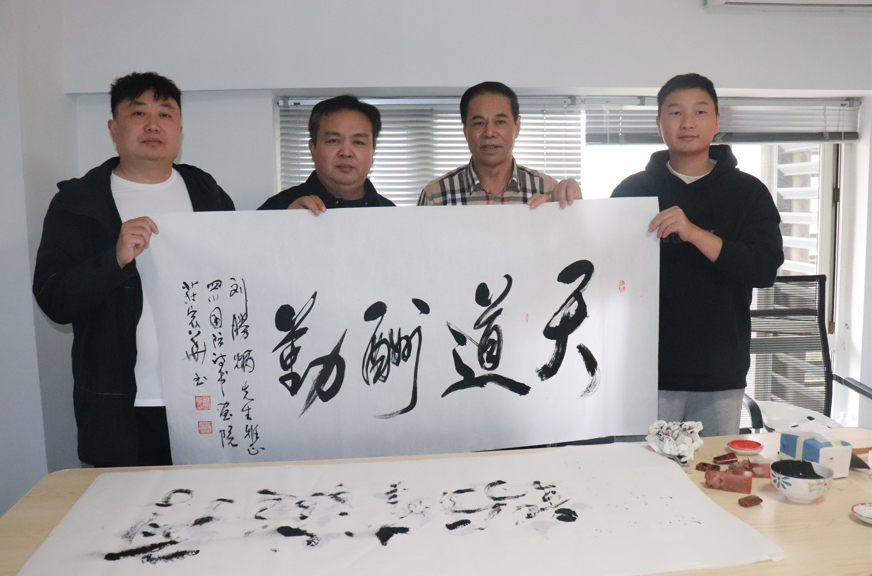 天道酬勤
刘勝炳先生雅正
四川国际诗书画院
莊宏華书